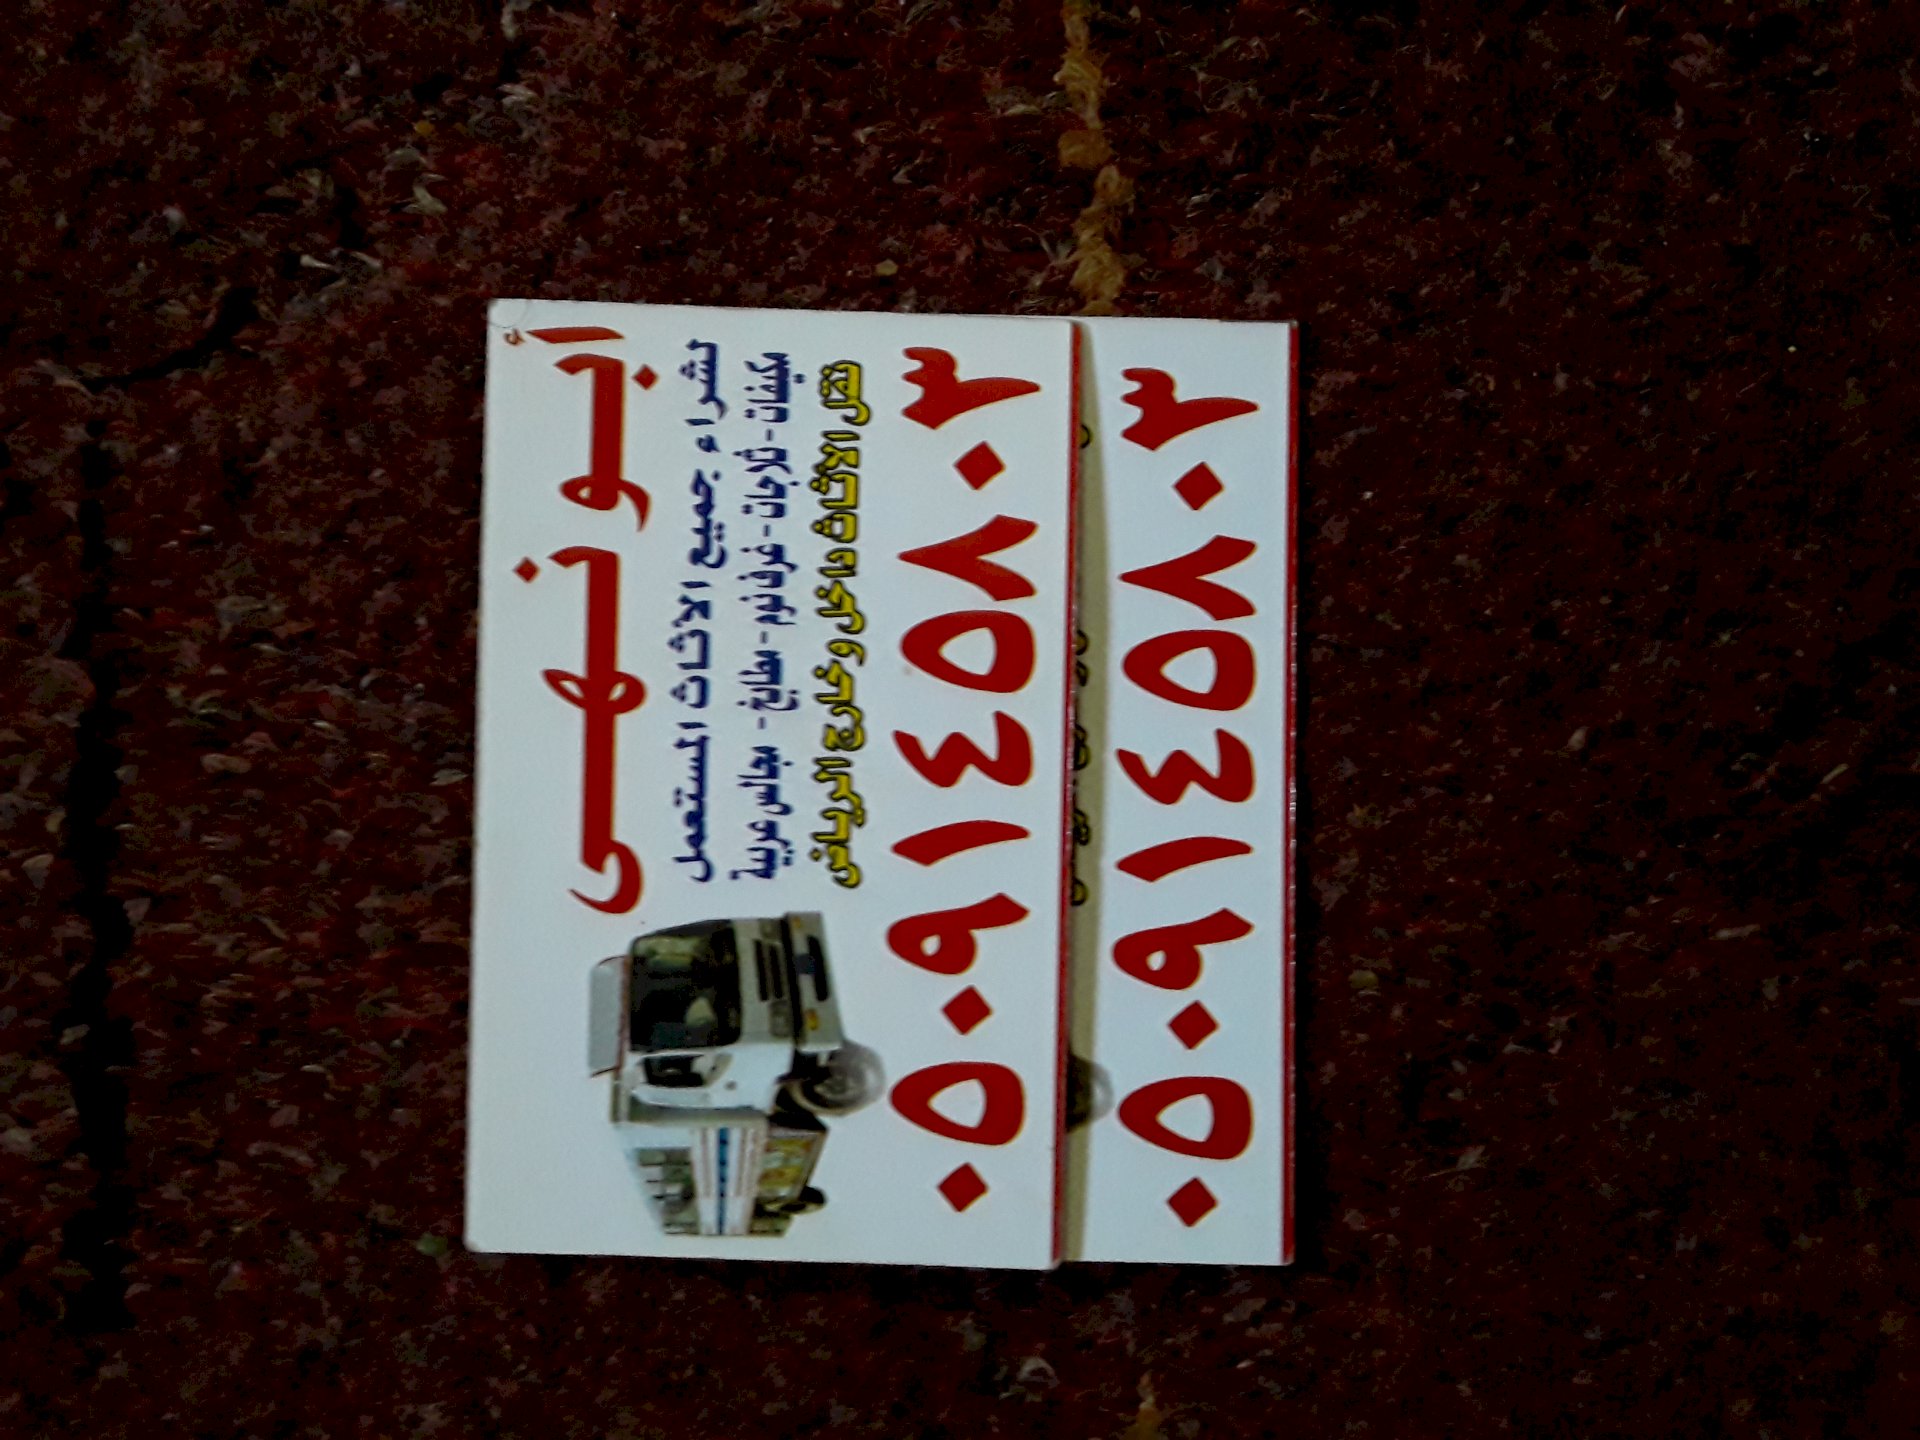 أبو نهى
لشراء جميع الاثاث المستعمل
مكيفات - ثلاجات - غرف نوم - مطابخ - مجالس عربية
نقل الاثاث داخل وخارج الرياض
٠٥٠٩١٤٥٨٠٣
٠٥٠٩١٤٥٨٠٣